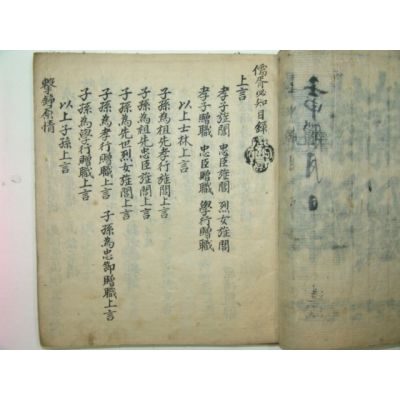 儒胥必知目錄
上言
孝子旌閭 忠臣旌閭 烈女旌閭
孝子贈職 忠臣贈職 學行贈職
以上士林上言
子孫為祖先孝行旌閭上言
子孫為祖先忠臣旌閭上言
子孫為先世烈女旌閭上言
子孫為孝行贈職上言 子孫為忠節贈職上言
子孫為學行贈職上言
以上子孫上言
擊錚原情
月 日